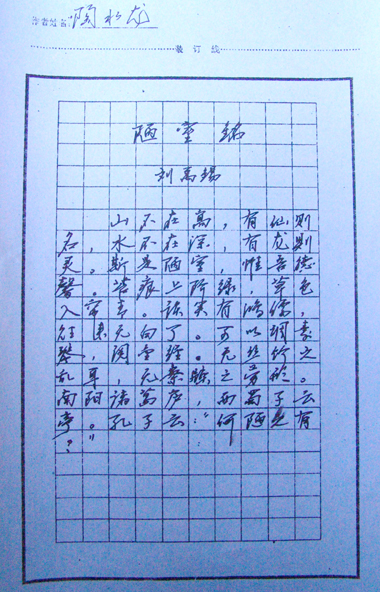 作者姓名 陶
装 订 线
陋室铭
刘禹锡
山不在高，有仙则
名，水不在深，有龙则
灵。斯是陋室，惟吾德
馨。苔痕上阶绿，草色
入帘青。谈笑有鸿儒，
往来无白丁。可以调素
琴，阅金经。无丝竹之
乱耳，无案牍之劳形。
南阳诸葛庐，西蜀子云
亭。孔子云：“何陋之有
？”